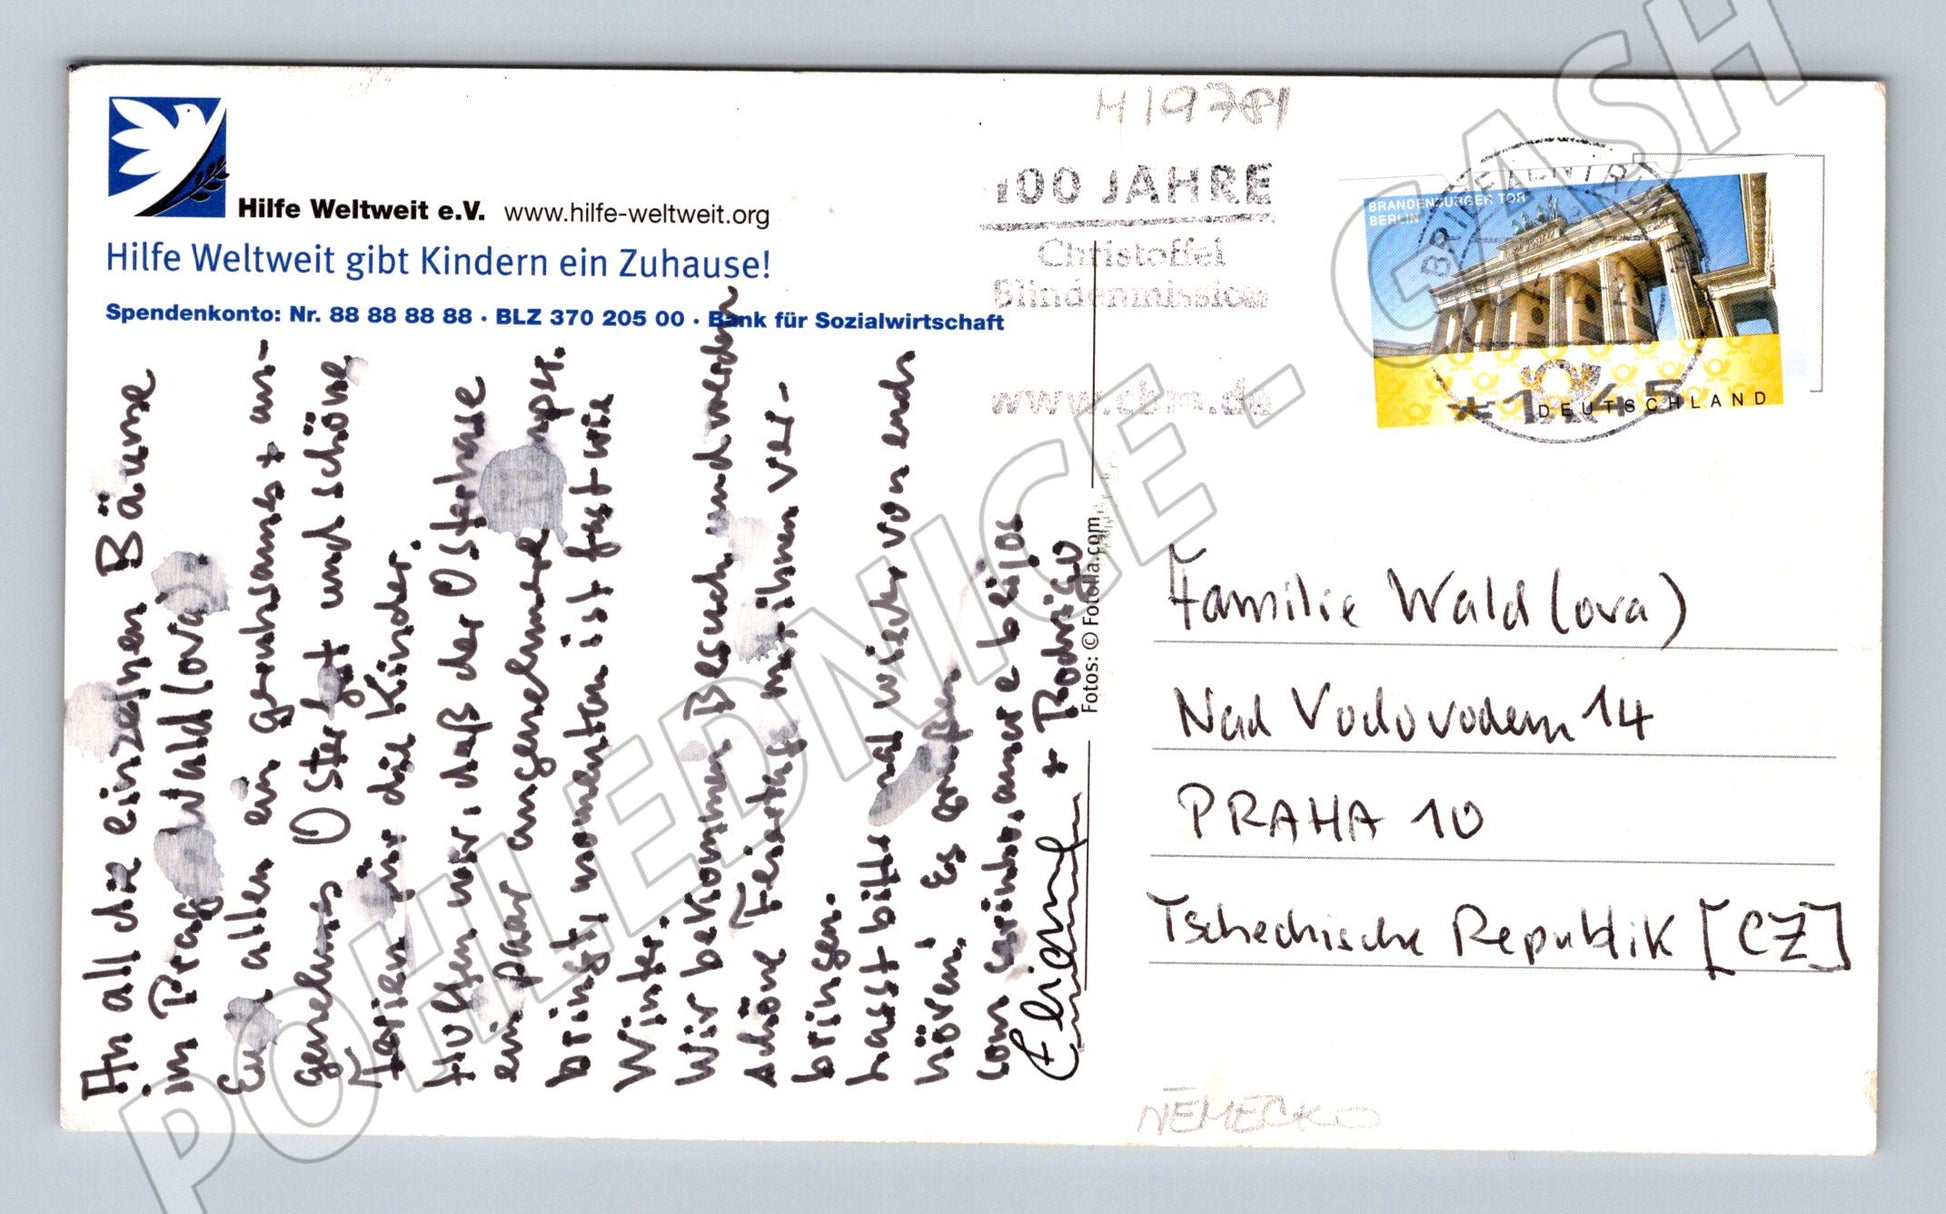 Hilfe Weltweit e.V. www.hilfe-weltweit.org
Hilfe Weltweit gibt Kindern ein Zuhause!
Spendenkonto: Nr. 88 88 88 88 · BLZ 370 205 00 · Bank für Sozialwirtschaft
An all die einzelnen Bäume
im Prag Wald(ova)
Euch allen ein geruhsames + an-
genehmes Osterfest und schöne
Ferien für die Kinder.
Hoffen wir, daß der Osterhase
ein paar angenehmere
bringt momentan ist fast wie
Winter.
Wir bekommen Besuch und werden
schöne Feiertage mit ihnen ver-
bringen.
Lasst bitte mal wieder von euch
hören! Es grüßen
com carinho, amor e beijos
+ Rodrigo
Fotos: © Fotolia.com
H19781
100 JAHRE
Christoffel
Blindenmission
www.cbm.de
BRANDENBURGER TOR
BERLIN
DEUTSCHLAND
*1,45
Familie Wald(ova)
Nad Vodovodem 14
PRAHA 10
Tschechische Republik [CZ]
NĚMECKO
POHLEDNICE - GASH